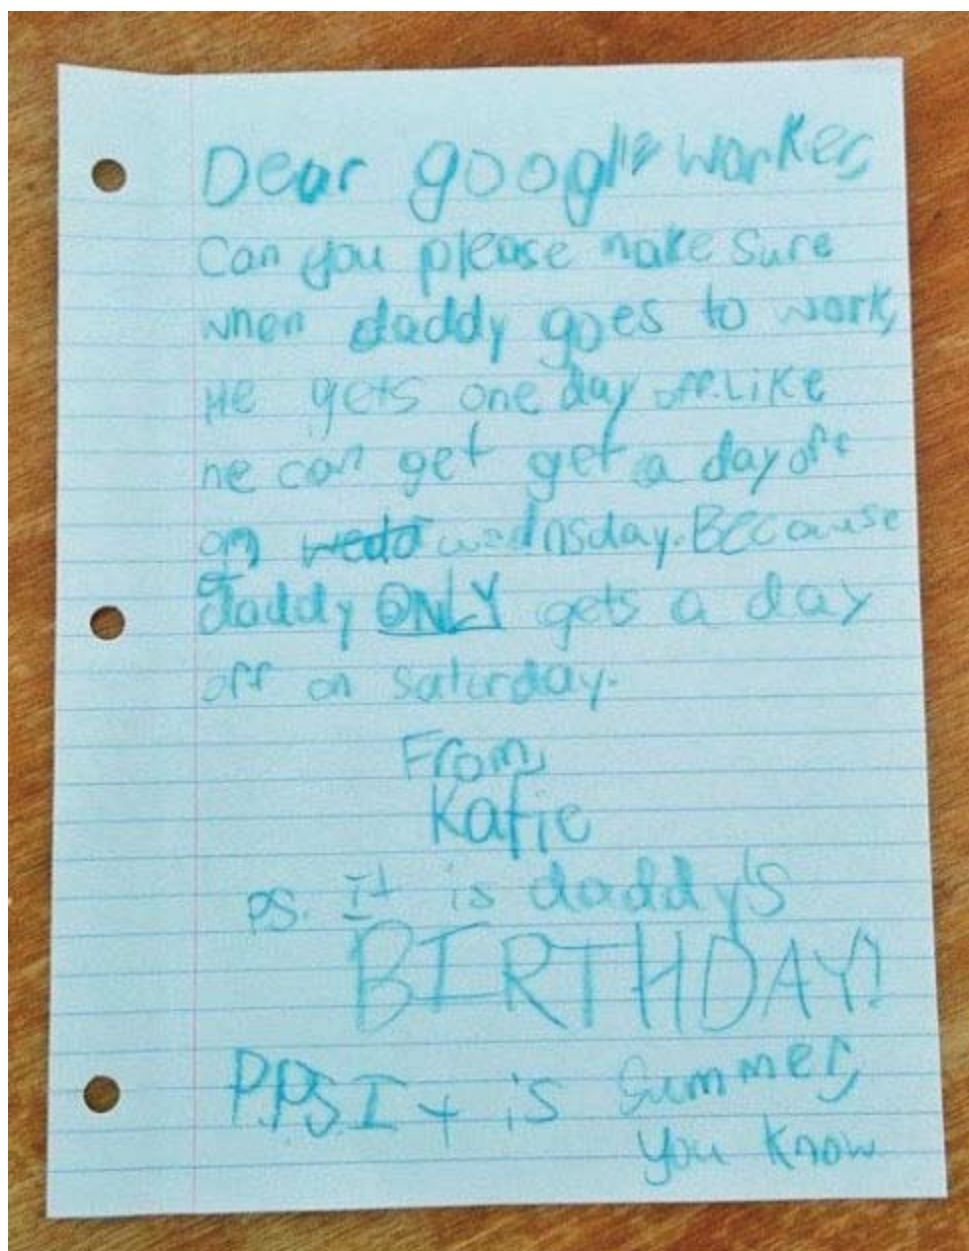 Dear google worker,
Can you please make sure
when daddy goes to work,
He gets one day off. Like
he can get get a day off
on wedn​sday. Because
daddy ONLY gets a day
off on saturday.
From,
Katie
P.S. It is daddy's
BIRTHDAY!
P.P.S. It is summer,
you know